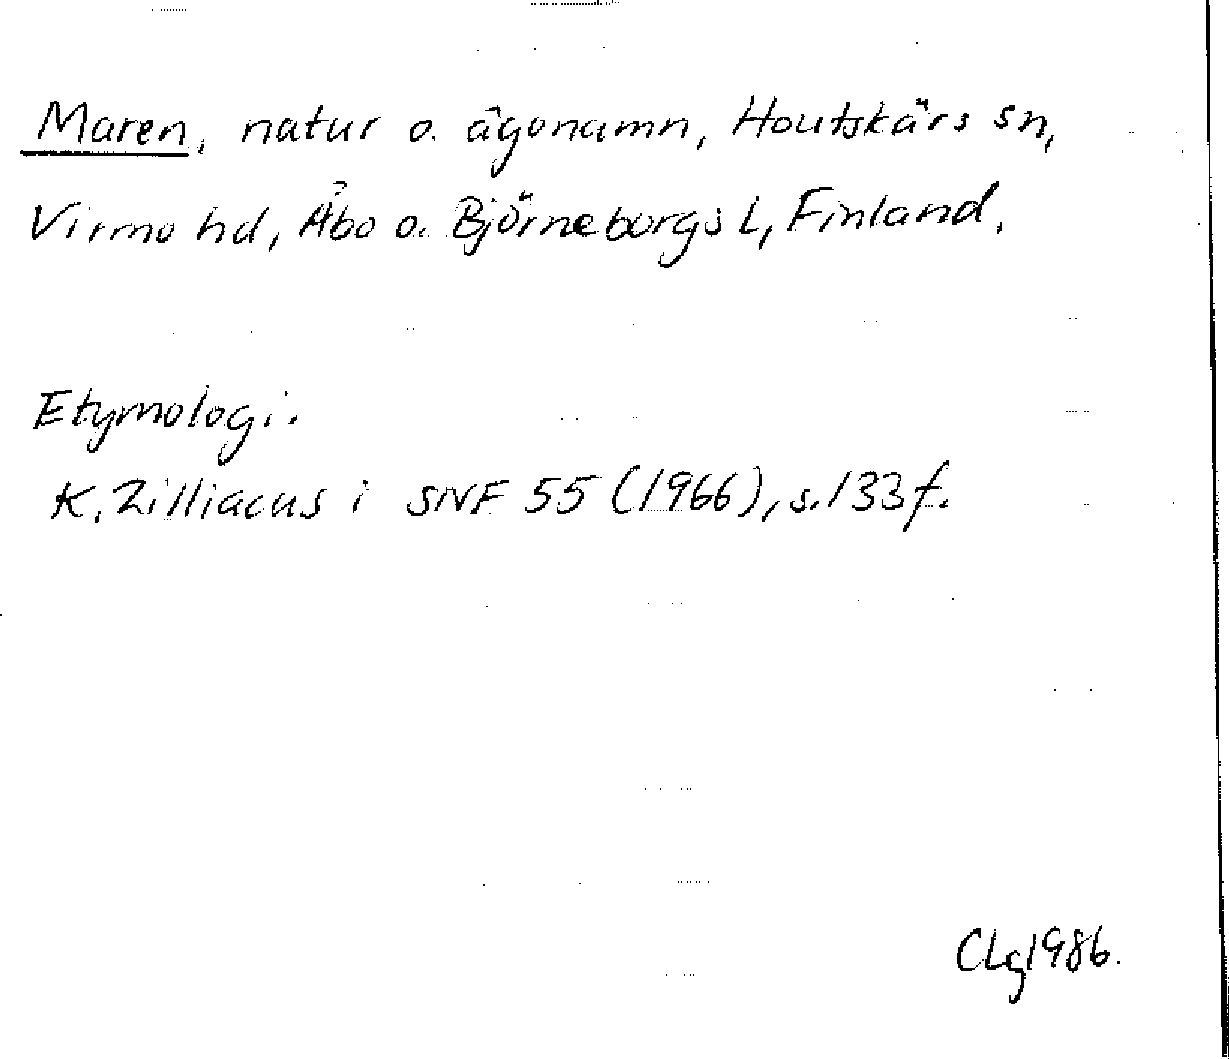 Maren, natur o. ägonamn, Houtskärs sn,
Virmo hd, Åbo o. Björneborgs L, Finland.
Etymologi.
K. Zilliacus i SNF 55 (1966), s. 133 f.
CLg 1986.